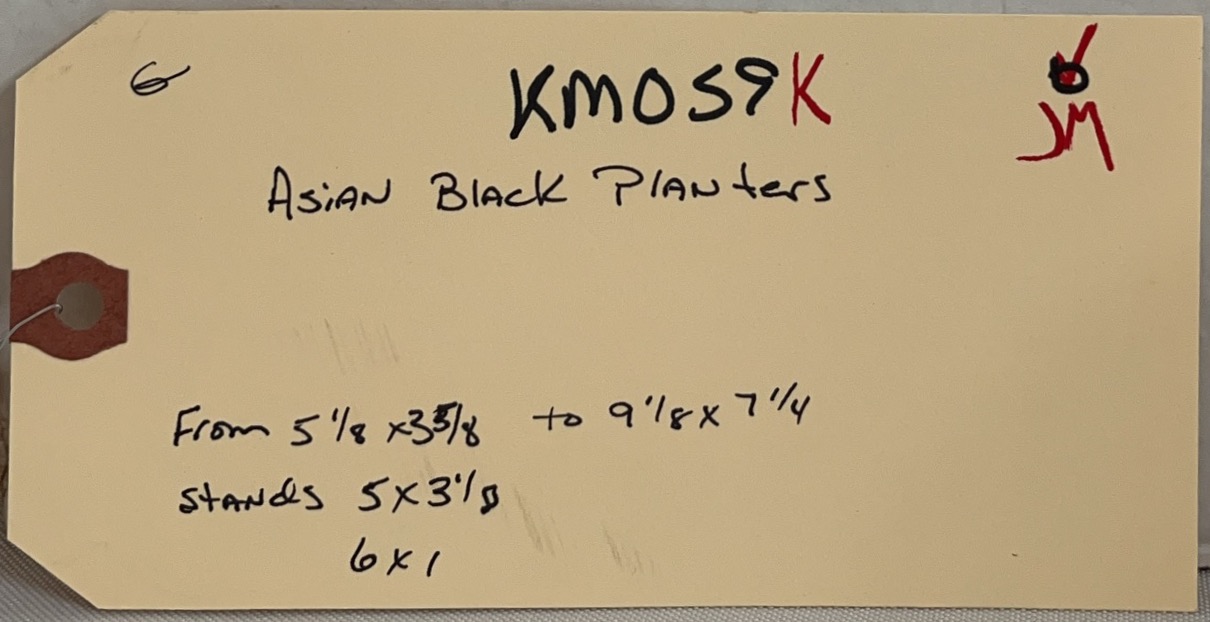 6
KM059K
6
JM
Asian Black Planters
From 5 1/8 x 3 5/8 to 9 1/8 x 7 1/4
stands 5 x 3 1/8
6 x 1